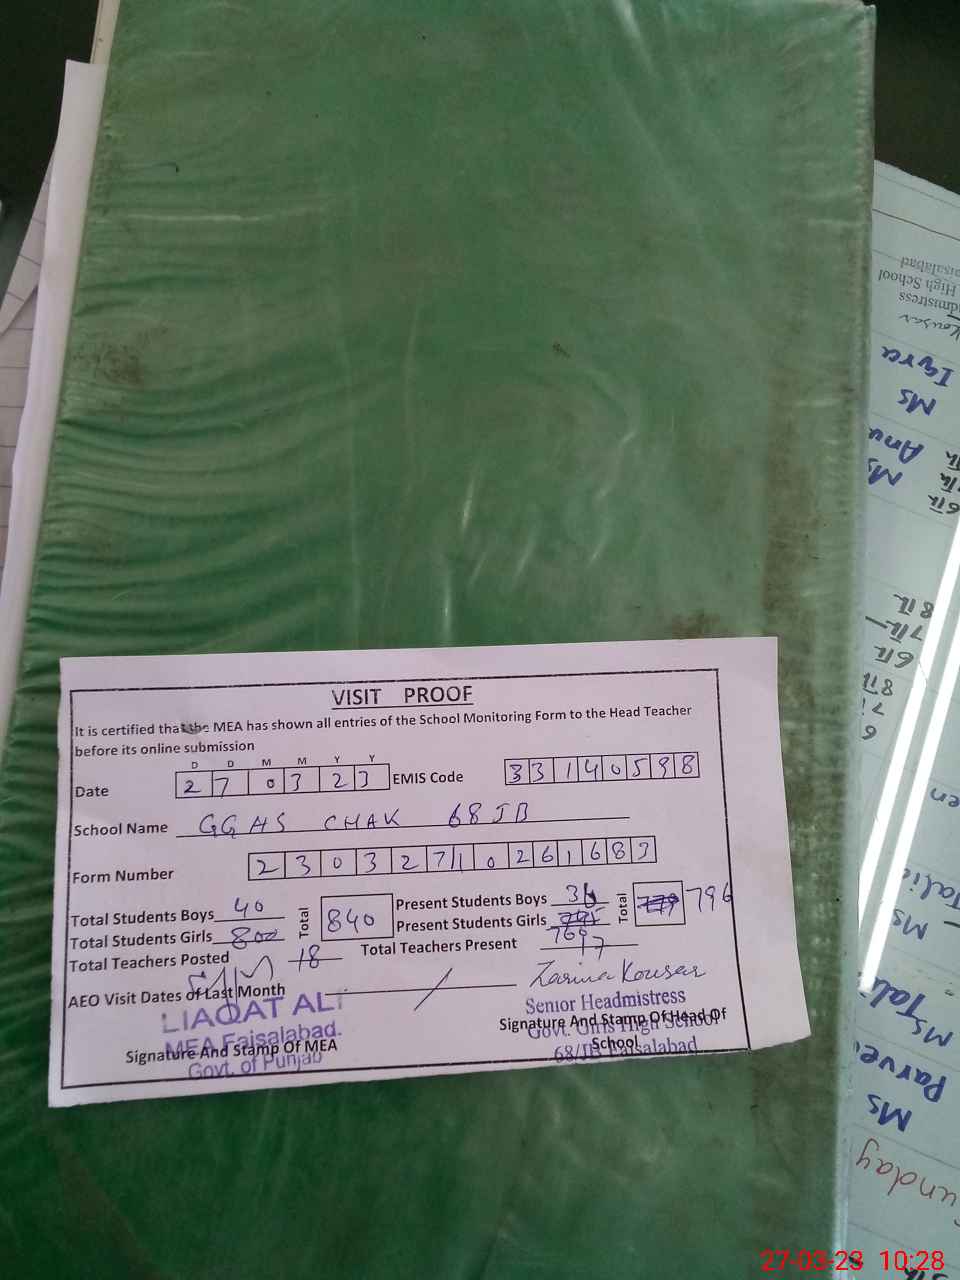 VISIT PROOF
It is certified that the MEA has shown all entries of the School Monitoring Form to the Head Teacher
before its online submission
D D M M Y Y
Date 27 03 23 EMIS Code 33140598
School Name GGHS CHAK 68 JB
Form Number 230327/10261683
Total Students Boys 40 Total 840 Present Students Boys 36 Total 796
Total Students Girls 800 Present Students Girls
Total Teachers Posted 18 Total Teachers Present 17
AEO Visit Dates of Last Month
Zarina Kousar
LIAQAT ALI
MEA Faisalabad.
Govt. of Punjab
Signature And Stamp Of MEA
Senior Headmistress
Govt. Girls High School
68/JB Faisalabad
Signature And Stamp Of Head Of
School
High School
Kousar
Iqra
Ms
Ms
8th
7th
6th
Ms
Ms
Ms
27-03-23 10:28